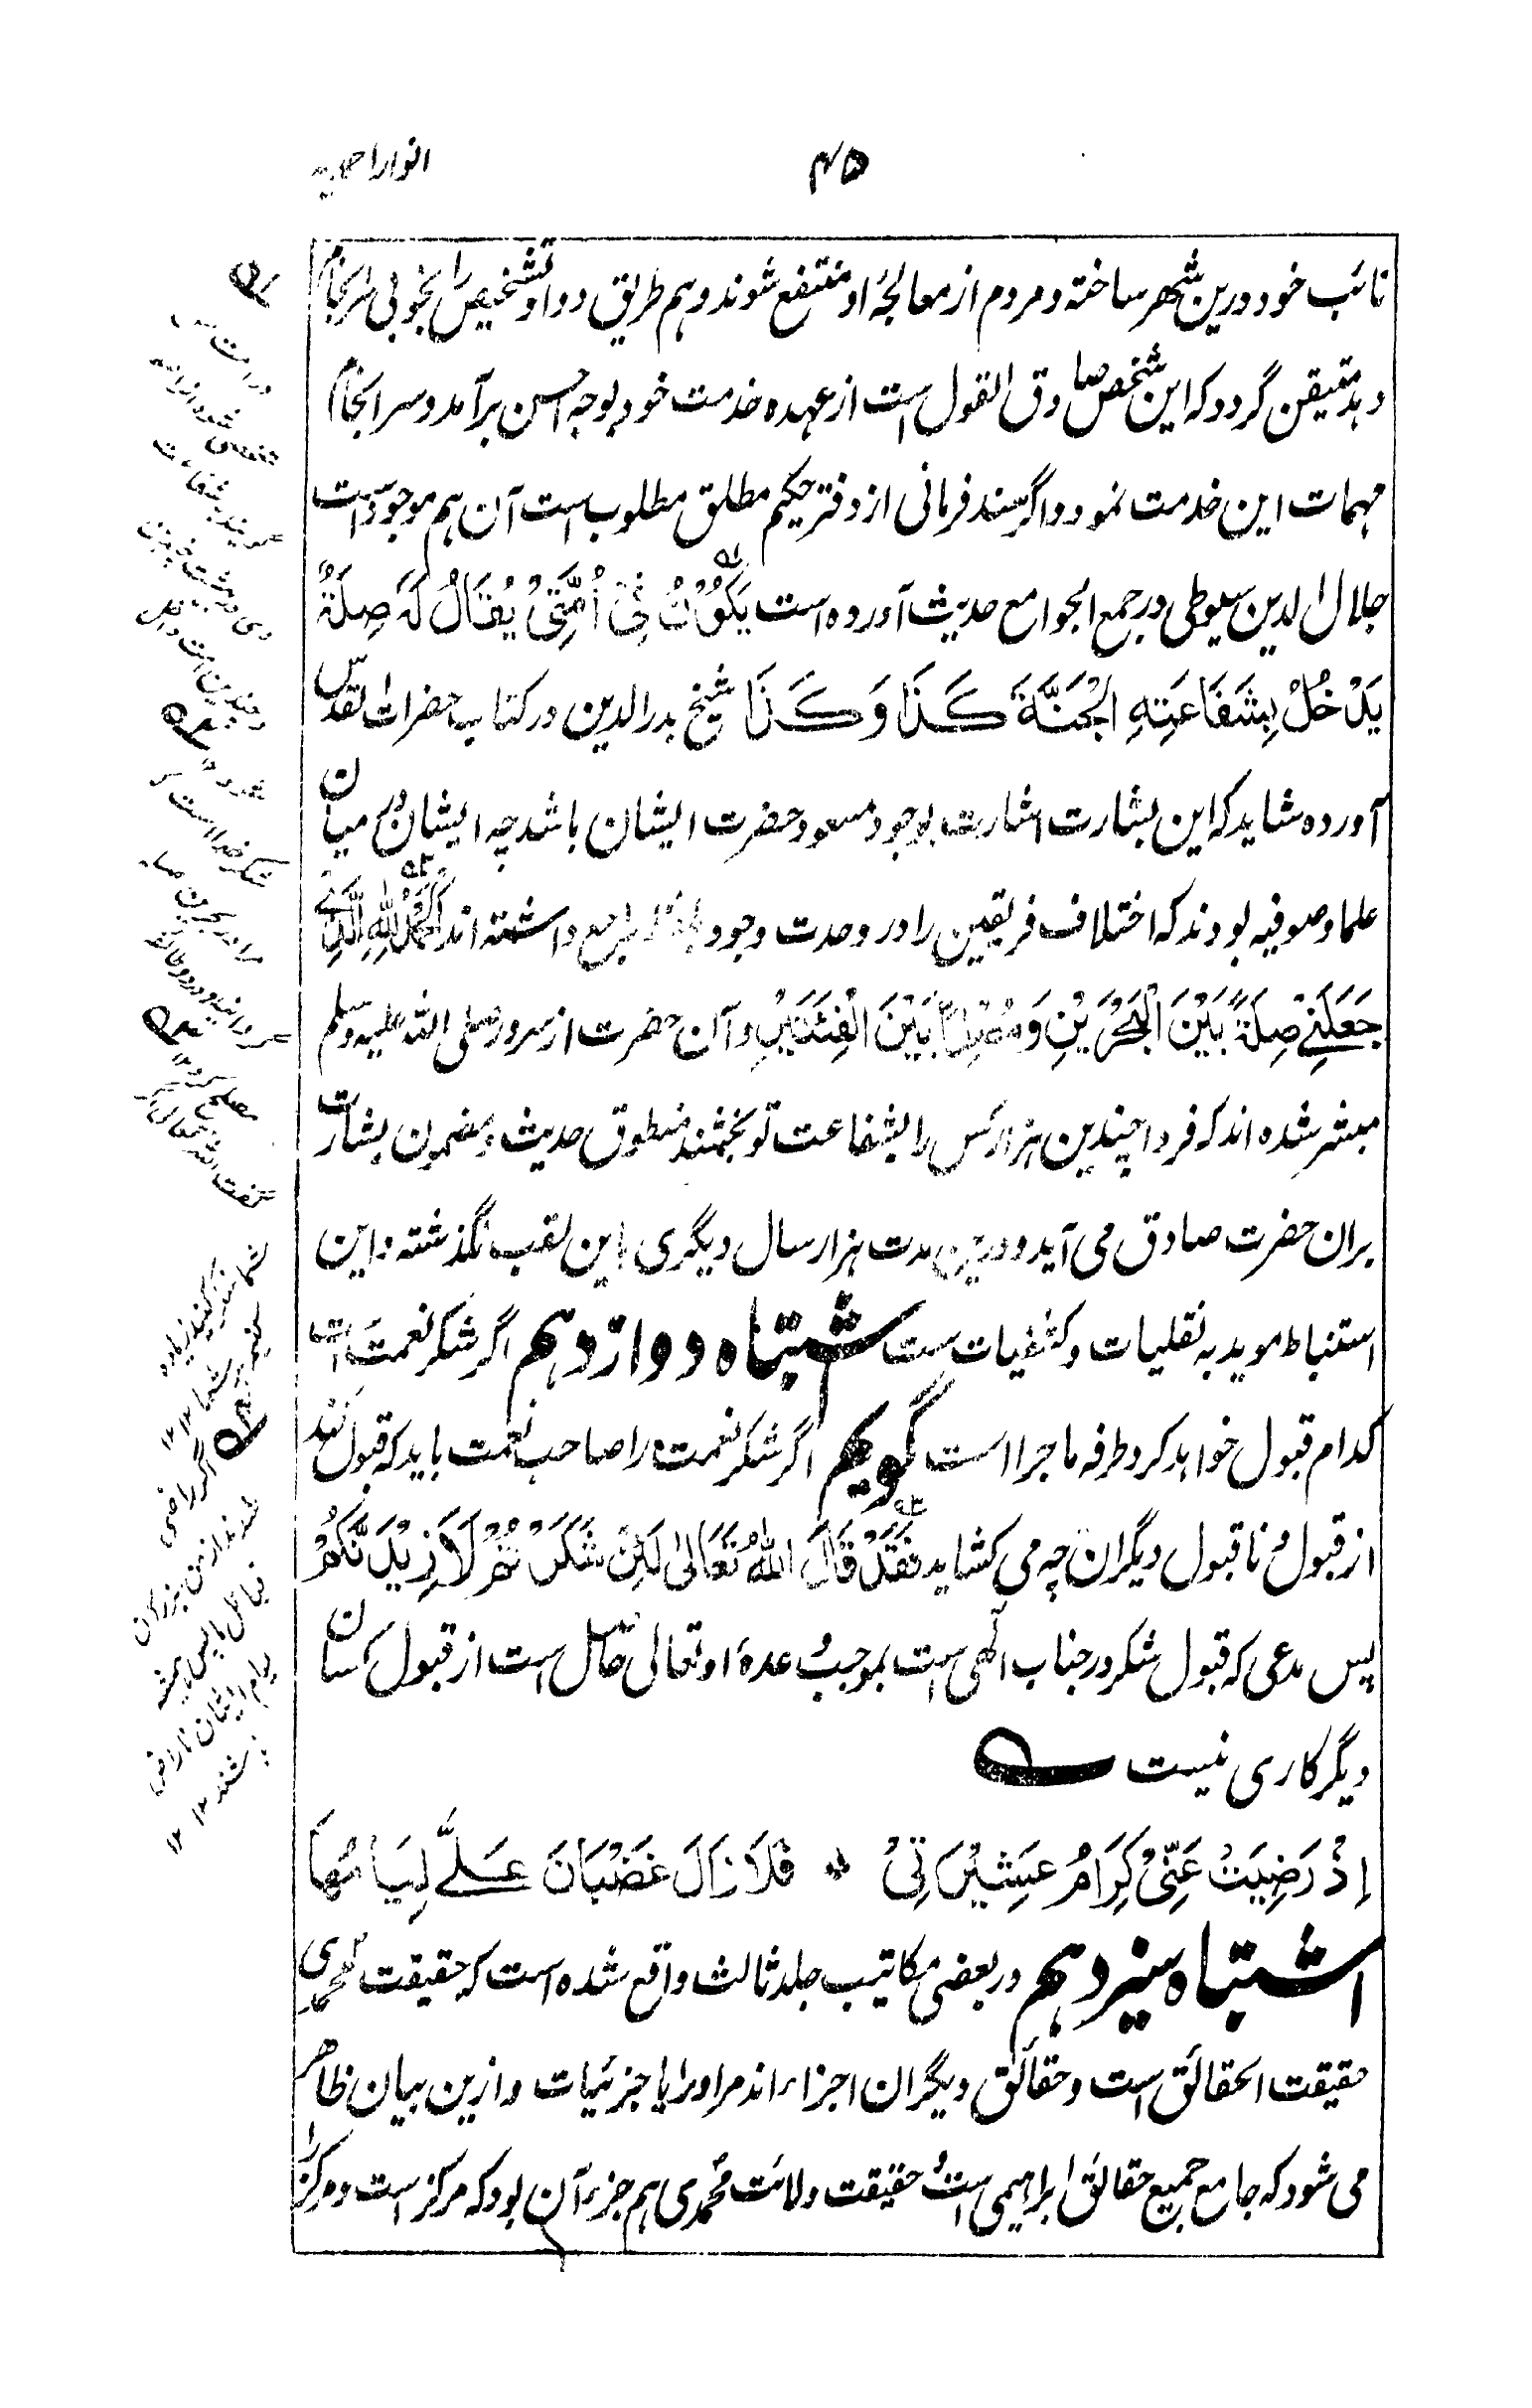 انوار احمدیه
۴۵
نائب خود درین شهر ساخته و مردم از معالجهٔ او منتفع شوند و هم طریق دوا و تشخیص را بخوبی سرانجام
دهد متیقن گردد که این شخص صادق القول است از عهده خدمت خود بوجه احسن برآمد و سرانجام
مهمات این خدمت نمود و اگر سند فرمانی از دفتر حکیم مطلق مطلوب است آن هم موجود است
جلال الدین سیوطی در جمع الجوامع حدیث آورده است یَکُوْنُ فِیْ اُمَّتِیْ یُقَالُ لَهٗ صِلَةٌ
یَدْخُلُ بِشَفَاعَتِهِ الْجَنَّةَ کَذَا وَکَذَا شیخ بدرالدین در کتاب حضرات القدس
آورده شاید که این بشارت اشارت بوجود مسعود حضرت ایشان باشد چه ایشان در میان
علما و صوفیه بودند که اختلاف فریقین را در وحدت وجود راجع داشته اند اَلْحَمْدُ لِلّٰهِ الَّذِیْ
جَعَلَنِیْ صِلَةً بَیْنَ الْبَحْرَیْنِ وَمُصْلِحًا بَیْنَ الْفِئَتَیْنِ و آن حضرت از سرور صلی الله علیه وسلم
مبشر شده اند که فردا چندین هزار کس را بشفاعت تو بخشند منطوق حدیث و مضمون بشارت
بران حضرت صادق می آید و درین مدت هزار سال دیگری باین لقب نگذشته و این
استنباط موید به نقلیات و کشفیات ست اشتباه دوازدهم اگر شکر نعمت است
کدام قبول خواهد کرد طرفه ماجرا است گویم اگر شکر نعمت را صاحب نعمت باید که قبول کند
از قبول و نا قبول دیگران چه می کشاید فَقَدْ قَالَ اللهُ تَعَالیٰ لَئِنْ شَکَرْتُمْ لَاَزِیْدَنَّکُمْ
پس مدعی که قبول شکر در جناب الٰهی است بموجب وعدهٔ او تعالی حاصل است از قبول کسان
دیگر کاری نیست
اِذْ رَضِیَتْ عَنِّیْ کِرَامُ عَشِیْرَتِیْ * فَلَا زَالَ غَضْبَانَ عَلَیَّ لِیَامُهَا
اشتباه سیزدهم در بعضی مکاتیب جلد ثالث واقع شده است که حقیقت محمدی
حقیقت الحقائق است و حقائق دیگران اجزاء اند مر او را یا جزئیات و ازین بیان ظاهر
می شود که جامع جمیع حقائق ابراهیمی است و حقیقت ولایت محمدی هم جزء آن بود که مرکز است و مرکز را
شکر خدا است
گفت الله تعالی اگر
شما شکر کنید زیاده
شما ۱۲
اگر راضی
شدند از من بزرگان
قبائل پس همیشه
ایشان ناراض
باشند ۱۲